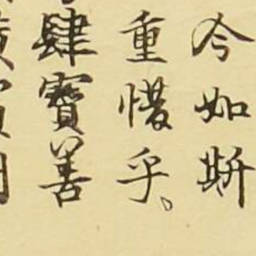 今如斯
重惜乎。
肆寶善